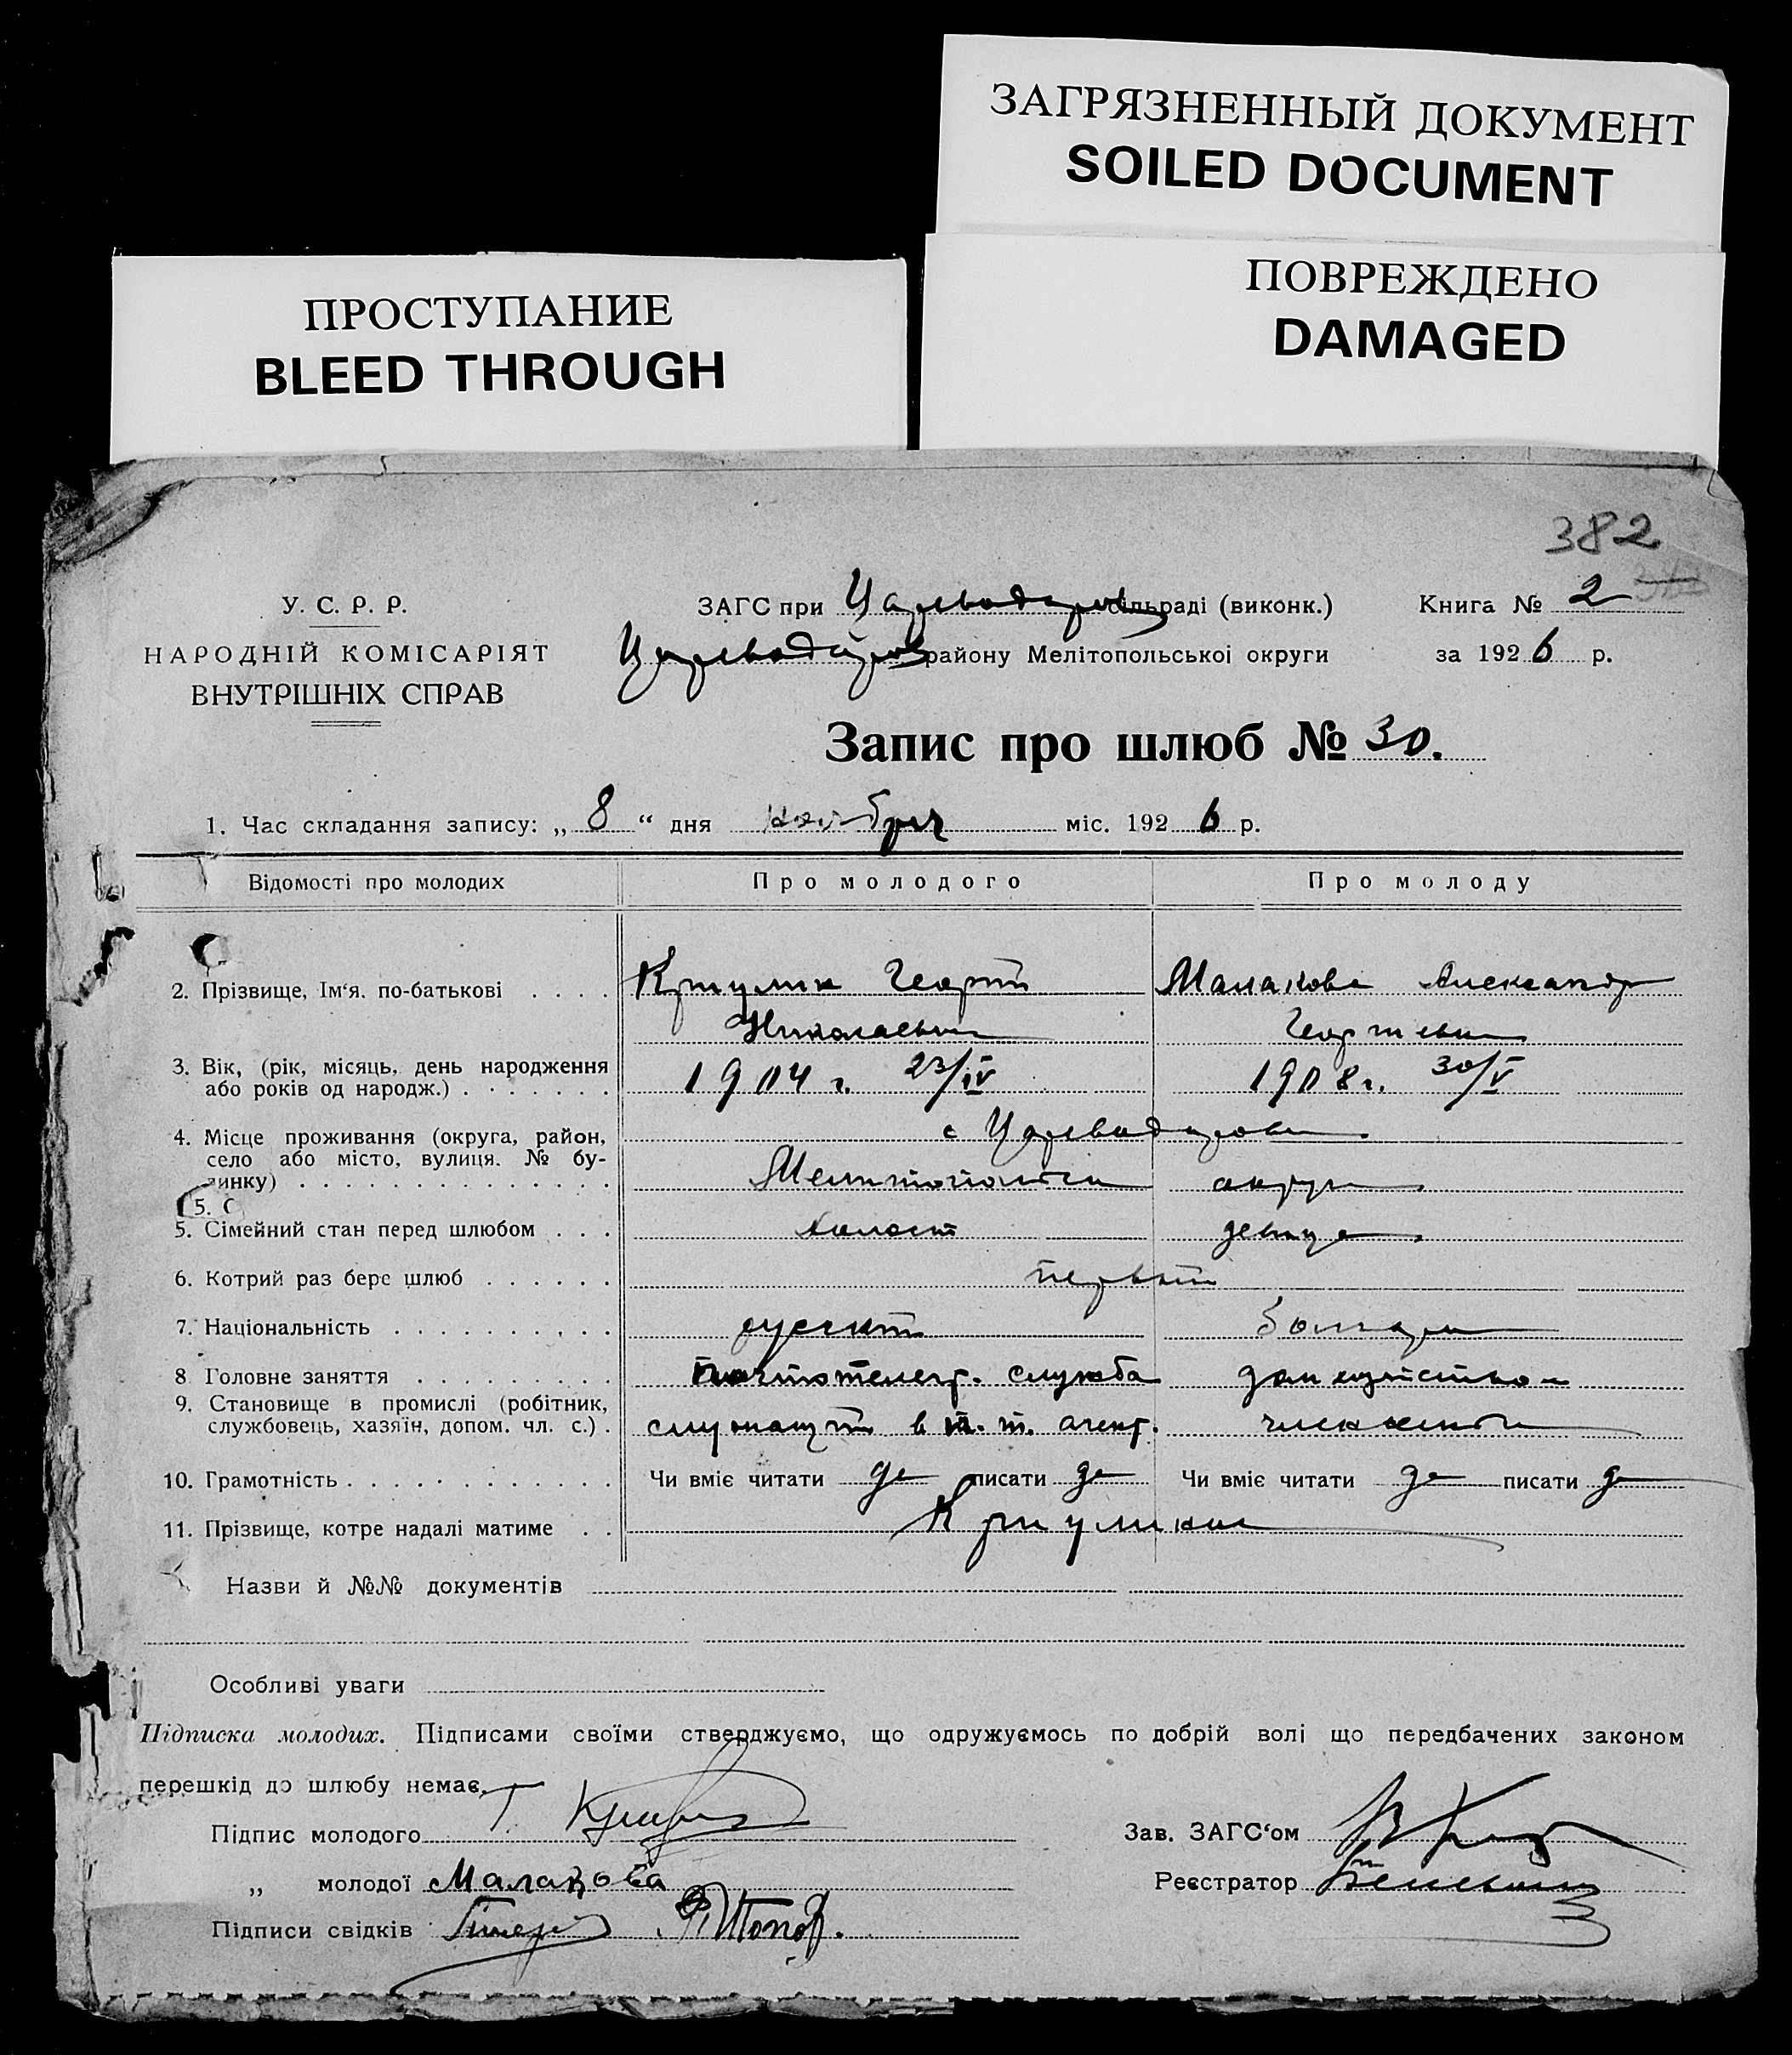 ЗАГРЯЗНЕННЫЙ ДОКУМЕНТ
SOILED DOCUMENT
ПОВРЕЖДЕНО
DAMAGED
ПРОСТУПАНИЕ
BLEED THROUGH
382
У. С. Р. Р.
НАРОДНІЙ КОМІСАРІЯТ
ВНУТРІШНІХ СПРАВ
ЗАГС при Цареводаров сільраді (виконк.)
Книга № 2
Цареводаров району Мелітопольської округи
за 1926 р.
Запис про шлюб № 30.
1. Час складання запису: „ 8 “ дня ноября міс. 1926 р.
Відомості про молодих Про молодого Про молоду
2. Прізвище, Ім‘я. по-батькові . . . . Георгий Малакова Александр
Николаевич Георгиевн
3. Вік, (рік, місяць, день народження
або років од народж.) . . . . . . . 1904 г. 23/IV 1908 г. 30/V
4. Місце проживання (округа, район, с Цареводаровк
село або місто, вулиця. № бу-
динку) . . . . . . . . . . . . . . Мелитопольск округ
5. С
5. Сімейний стан перед шлюбом . . . холост девица
6. Котрий раз бере шлюб . . . . . . первый
7. Національність . . . . . . . . . . русский болгарк
8 Головне заняття . . . . . . . . . почтотелегр. служба
9. Становище в промислі (робітник,
службовець, хазяїн, допом. чл. с.) . служащий в п. т. агент.
10. Грамотність . . . . . . . . . . . . Чи вміє читати да писати да Чи вміє читати да писати да
11. Прізвище, котре надалі матиме . .
Назви й №№ документів
Особливі уваги
Підписка молодих. Підписами своїми стверджуємо, що одружуємось по добрій волі що передбачених законом
перешкід до шлюбу немає.
Підпис молодого
Зав. ЗАГС‘ом
„ молодої Малакова
Реєстратор
Підписи свідків